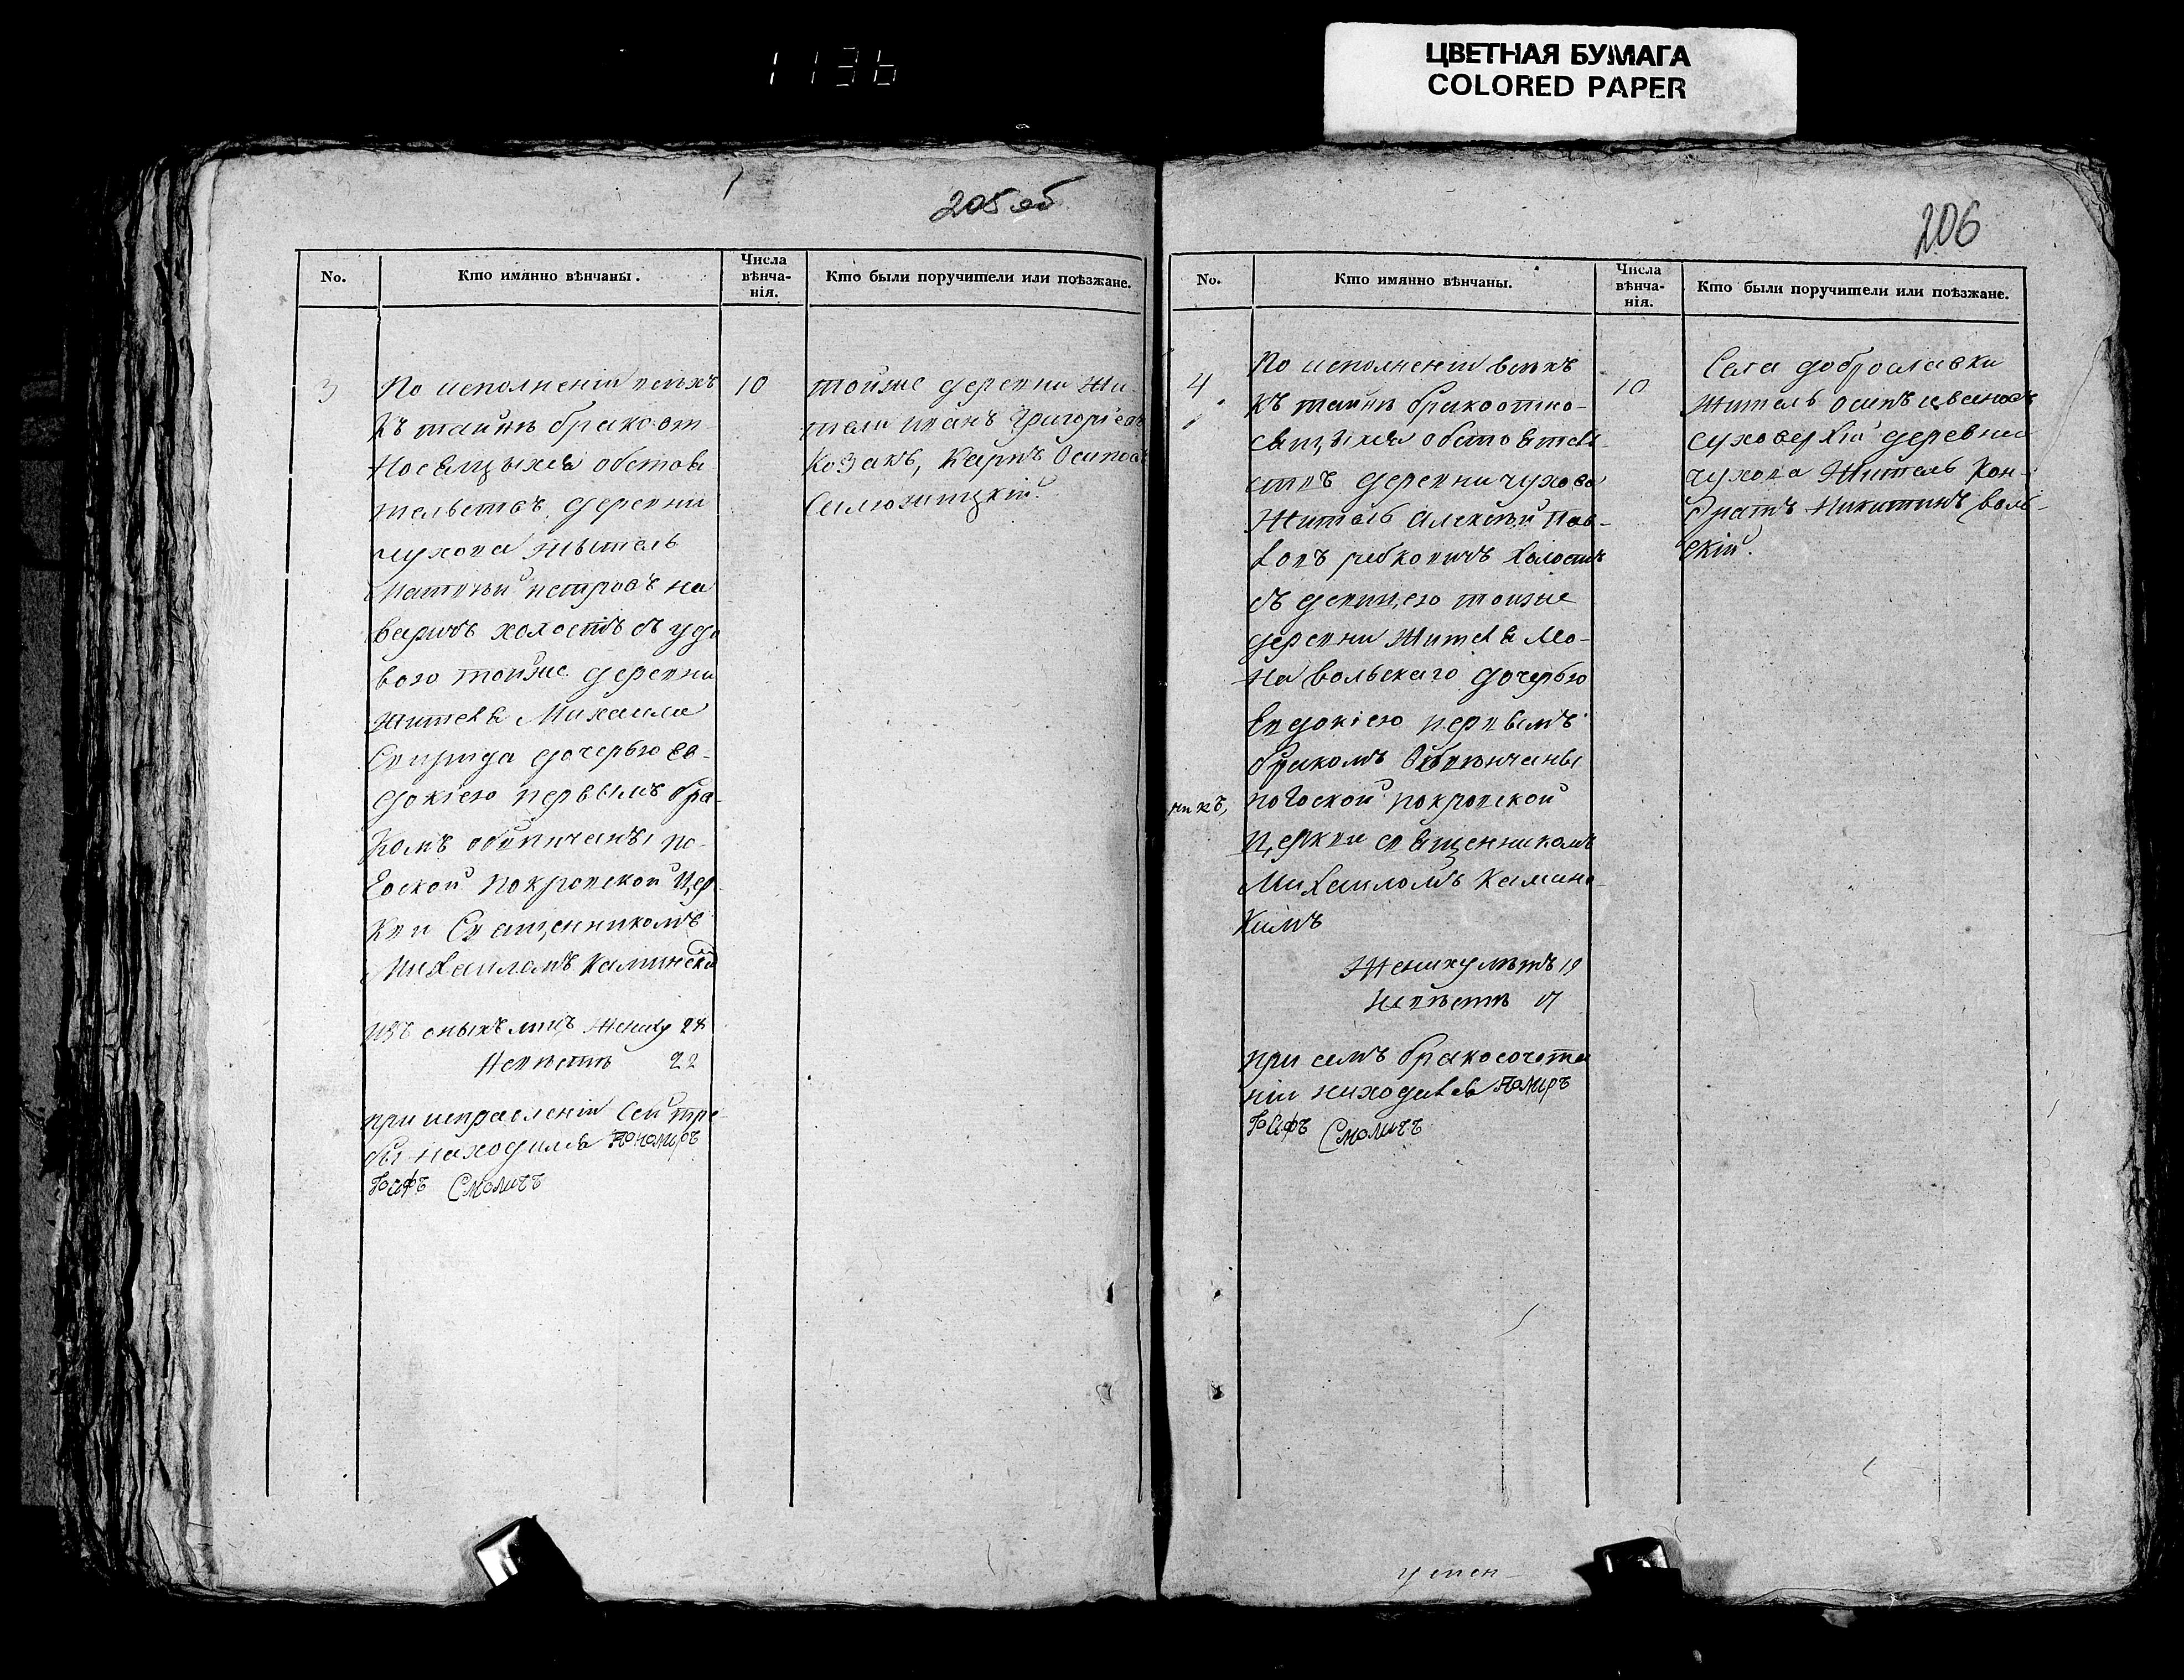 1136
ЦВЕТНАЯ БУМАГА
COLORED PAPER
205 об
No.
Кто имянно вѣнчаны.
Числа вѣнча-
нія.
Кто были поручители или поѣзжане.
3
По исполненіи всѣхъ
къ тайнѣ брака от
носящыхся обстоя
тельствъ, деревни
чухова жытель
Матвѣй петровъ на
варичъ холостъ съ удо
вою тойже деревни
жителя Михаила
Свирида дочерью ев-
докіею первымъ бра-
комъ обвѣнчаны по-
гоской покровской цер
кви Священникомъ
Михаиломъ Калински
изъ оныхъ лицъ жениху 28
невѣстѣ 22
при исправленіи сей тре
бы находился Пономаръ
Іосифъ Смоличъ
10
тойже деревни жи-
тели иванъ Григоріевъ
козакъ, карпъ Осиповъ
206
No.
Кто имянно вѣнчаны.
Числа вѣнча-
нія.
Кто были поручители или поѣзжане.
4
По исполненіи всѣхъ
къ тайнѣ брака отно-
сящихся обстоятель
ствъ деревни чухова
житель алексѣй Пав-
ловъ холостъ
съ девицею тойже
деревни жителя
вольскаго дочерью
Евдокіею первымъ
бракомъ Обвѣнчаны
погоской покровской
церкви священникомъ
Михаиломъ
кимъ
Жениху лѣтъ 19
невѣстѣ 17
при семъ бракосочета
ніи находился Помаръ
Іосифъ Смоличъ
10
Села доброславки
житель осипъ ивановъ
суховерхій деревни
чухова житель кон-
дратъ никитинъ воль-
скій.